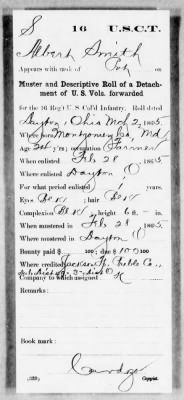 S 16 U.S.C.T.
Albert Smith
Appears with rank of Pvt on
Muster and Descriptive Roll of a Detach-
ment of U. S. Vols. forwarded
for the 16 Reg't U. S. Col'd Infantry. Roll dated
Dayton, Ohio Mch 2, 1865.
Where born Montgomery Co, Md
Age 24 y'rs; occupation Farmer
When enlisted Feb 28, 1865.
Where enlisted Dayton O
For what period enlisted 1 years.
Eyes Blk; hair Blk
Complexion Blk; height 6 ft. – in.
When mustered in Feb 28, 1865.
Where mustered in Dayton O
Bounty paid $ 100; due $ 100 100
Where credited Jackson Tp. Preble Co.,
3" Dist O
Company to which assigned K
Remarks:
Book mark:
(339) Copyist.